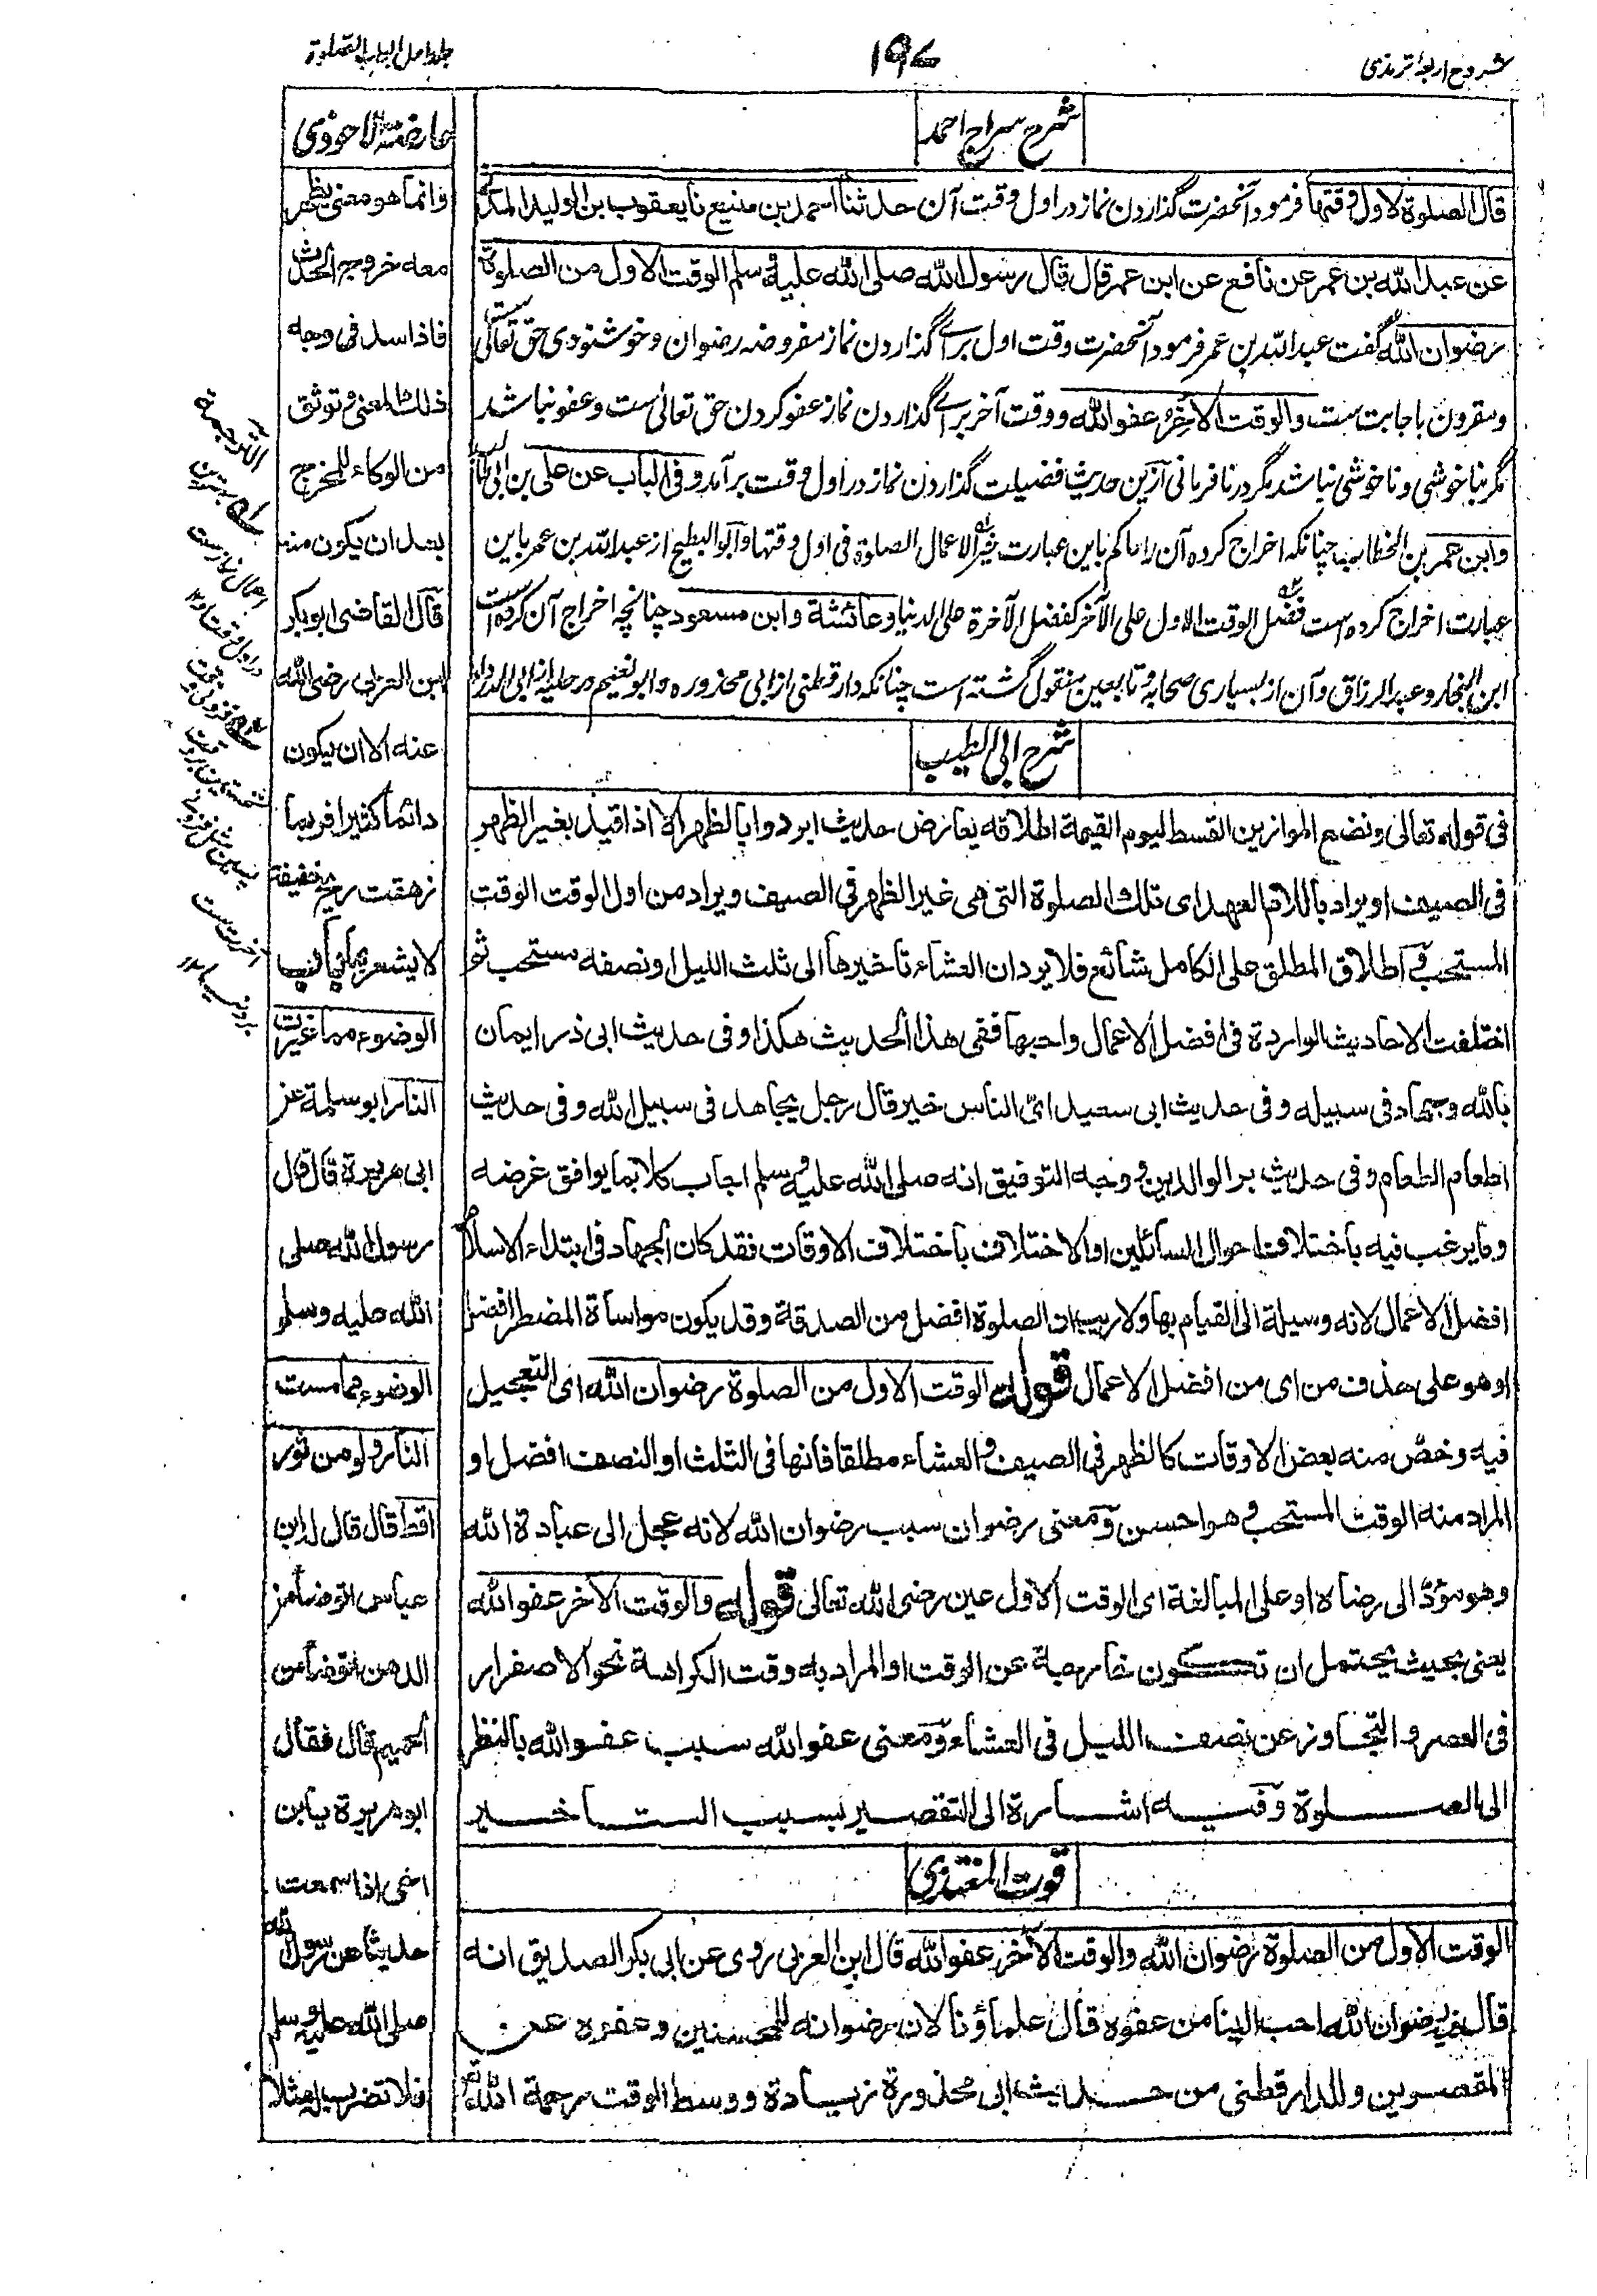 شروح اربعۂ ترمذی
۱۹۷
جلد اول ابواب الصلوة
شرح سراج احمد
قال الصلوة لاول وقتها فرمود آنحضرت گذاردن نماز در اول وقت آن حدثنا احمد بن منيع نا يعقوب بن الوليد المدنی
عن عبد الله بن عمر عن نافع عن ابن عمر قال قال رسول الله صلى الله عليه وسلم الوقت الاول من الصلوة
رضوان الله گفت عبد الله بن عمر فرمود آنحضرت وقت اول برائے گذاردن نماز مفروضه رضوان و خوشنودی حق تعالی ست
ومقرون باجابت ست والوقت الآخر عفو الله ووقت آخر برائے گذاردن نماز عفو کردن حق تعالی ست وعفو نباشد
مگر بناخوشی وناخوشی نباشد مگر در نافرمانی ازین حدیث فضیلت گذاردن نماز در اول وقت برآمد وفی الباب عن علی بن ابی طالب
وابن عمر بن الخطاب چنانکه اخراج کرده آن را حاکم باین عبارت خیر الاعمال الصلوة فی اول وقتها وابو الطیخ از عبد الله بن عمر باین
عبارت اخراج کرده است فضل الوقت الاول علی الآخر کفضل الآخرة علی الدنیا وعائشة وابن مسعود چنانچه اخراج آن کرده است
ابن النجار وعبد الرزاق وآن از بسیاری صحابه وتابعین منقول گشته است چنانکه دارقطنی از ابی محذوره وابو نعیم در حلیه از ابی الدرداء
شرح ابی الطیب
فی قوله تعالی ونضع الموازین القسط لیوم القیمة اطلاقه یعارض حدیث ابردوا بالظهر الا اذا قید بغیر الظهر
فی الصیف او یراد باللام العهد ای تلك الصلوة التی هی غیر الظهر فی الصیف ویراد من اول الوقت الوقت
المستحب فی اطلاق المطلق علی الکامل شائع فلا یرد ان العشاء تاخیرها الی ثلث اللیل او نصفه مستحب ثو
اختلفت الاحادیث الواردة فی افضل الاعمال واحبها ففی هذا الحدیث هکذا وفی حدیث ابی ذر ایمان
بالله وجهاد فی سبیله وفی حدیث ابی سعید ای الناس خیر قال رجل یجاهد فی سبیل الله وفی حدیث
اطعام الطعام وفی حدیث بر الوالدین ووجه التوفیق انه صلى الله علیه وسلم اجاب کلا بما یوافق غرضه
وما یرغب فیه باختلاف احوال السائلین او الاختلاف باختلاف الاوقات فقد کان الجهاد فی ابتداء الاسلام
افضل الاعمال لانه وسیلة الی القیام بها ولا ریب ان الصلوة افضل من الصدقة وقد یکون مواساة المضطر افضل
او هو علی حذف من ای من افضل الاعمال قوله الوقت الاول من الصلوة رضوان الله ای التعجیل
فیه وخص منه بعض الاوقات کالظهر فی الصیف والعشاء مطلقا فانها فی الثلث او النصف افضل او
المراد منه الوقت المستحب وهو احسن ومعنی رضوان سبب رضوان الله لانه عجل الی عبادة الله
وهو مؤد الی رضاه او علی المبالغة ای الوقت الاول عین رضی الله تعالی قوله والوقت الآخر عفو الله
یعنی بحیث یحتمل ان تکون خارجة عن الوقت او المراد به وقت الکراهة نحو الاصفرار
فی العصر والتجاوز عن نصف اللیل فی العشاء ومعنی عفو الله سبب عفو الله بالنظر
الی الصلوة وفیه اشارة الی التقصیر بسبب التاخیر
قوت المغتذی
الوقت الاول من الصلوة رضوان الله والوقت الآخر عفو الله قال ابن العربی روی عن ابی بکر الصدیق انه
قال فیه رضوان الله احب الینا من عفوه قال علماؤنا لان رضوانه للمحسنین وعفوه عن
المقصرین وللدارقطنی من حدیث ابی محذورة زیادة ووسط الوقت رحمة الله
عارضة الاحوذی
وانما هو معنی یظهر
معه خروج الحدث
فاذا انسد فی وجه
ذلك المعنی وتوثق
من الوکاء للمخرج
بعد ان یکون منه
قال القاضی ابو بکر
ابن العربی رضی الله
عنه الا ان یکون
دائما کثیرا فربما
زهقت ریح خفیفة
لا یشعر بها باب
الوضوء مما غیرت
النار ابو سلمة عن
ابی هریرة قال قال
رسول الله صلی
الله علیه وسلم
الوضوء مما مست
النار ولو من ثور
اقط قال قال له ابن
عباس اتوضأ من
الدهن اتوضأ من
الحمیم قال فقال
ابو هریرة یا ابن
اخی اذا سمعت
حدیثا عن رسول الله
صلی الله علیه وسلم
فلا تضرب له مثلا